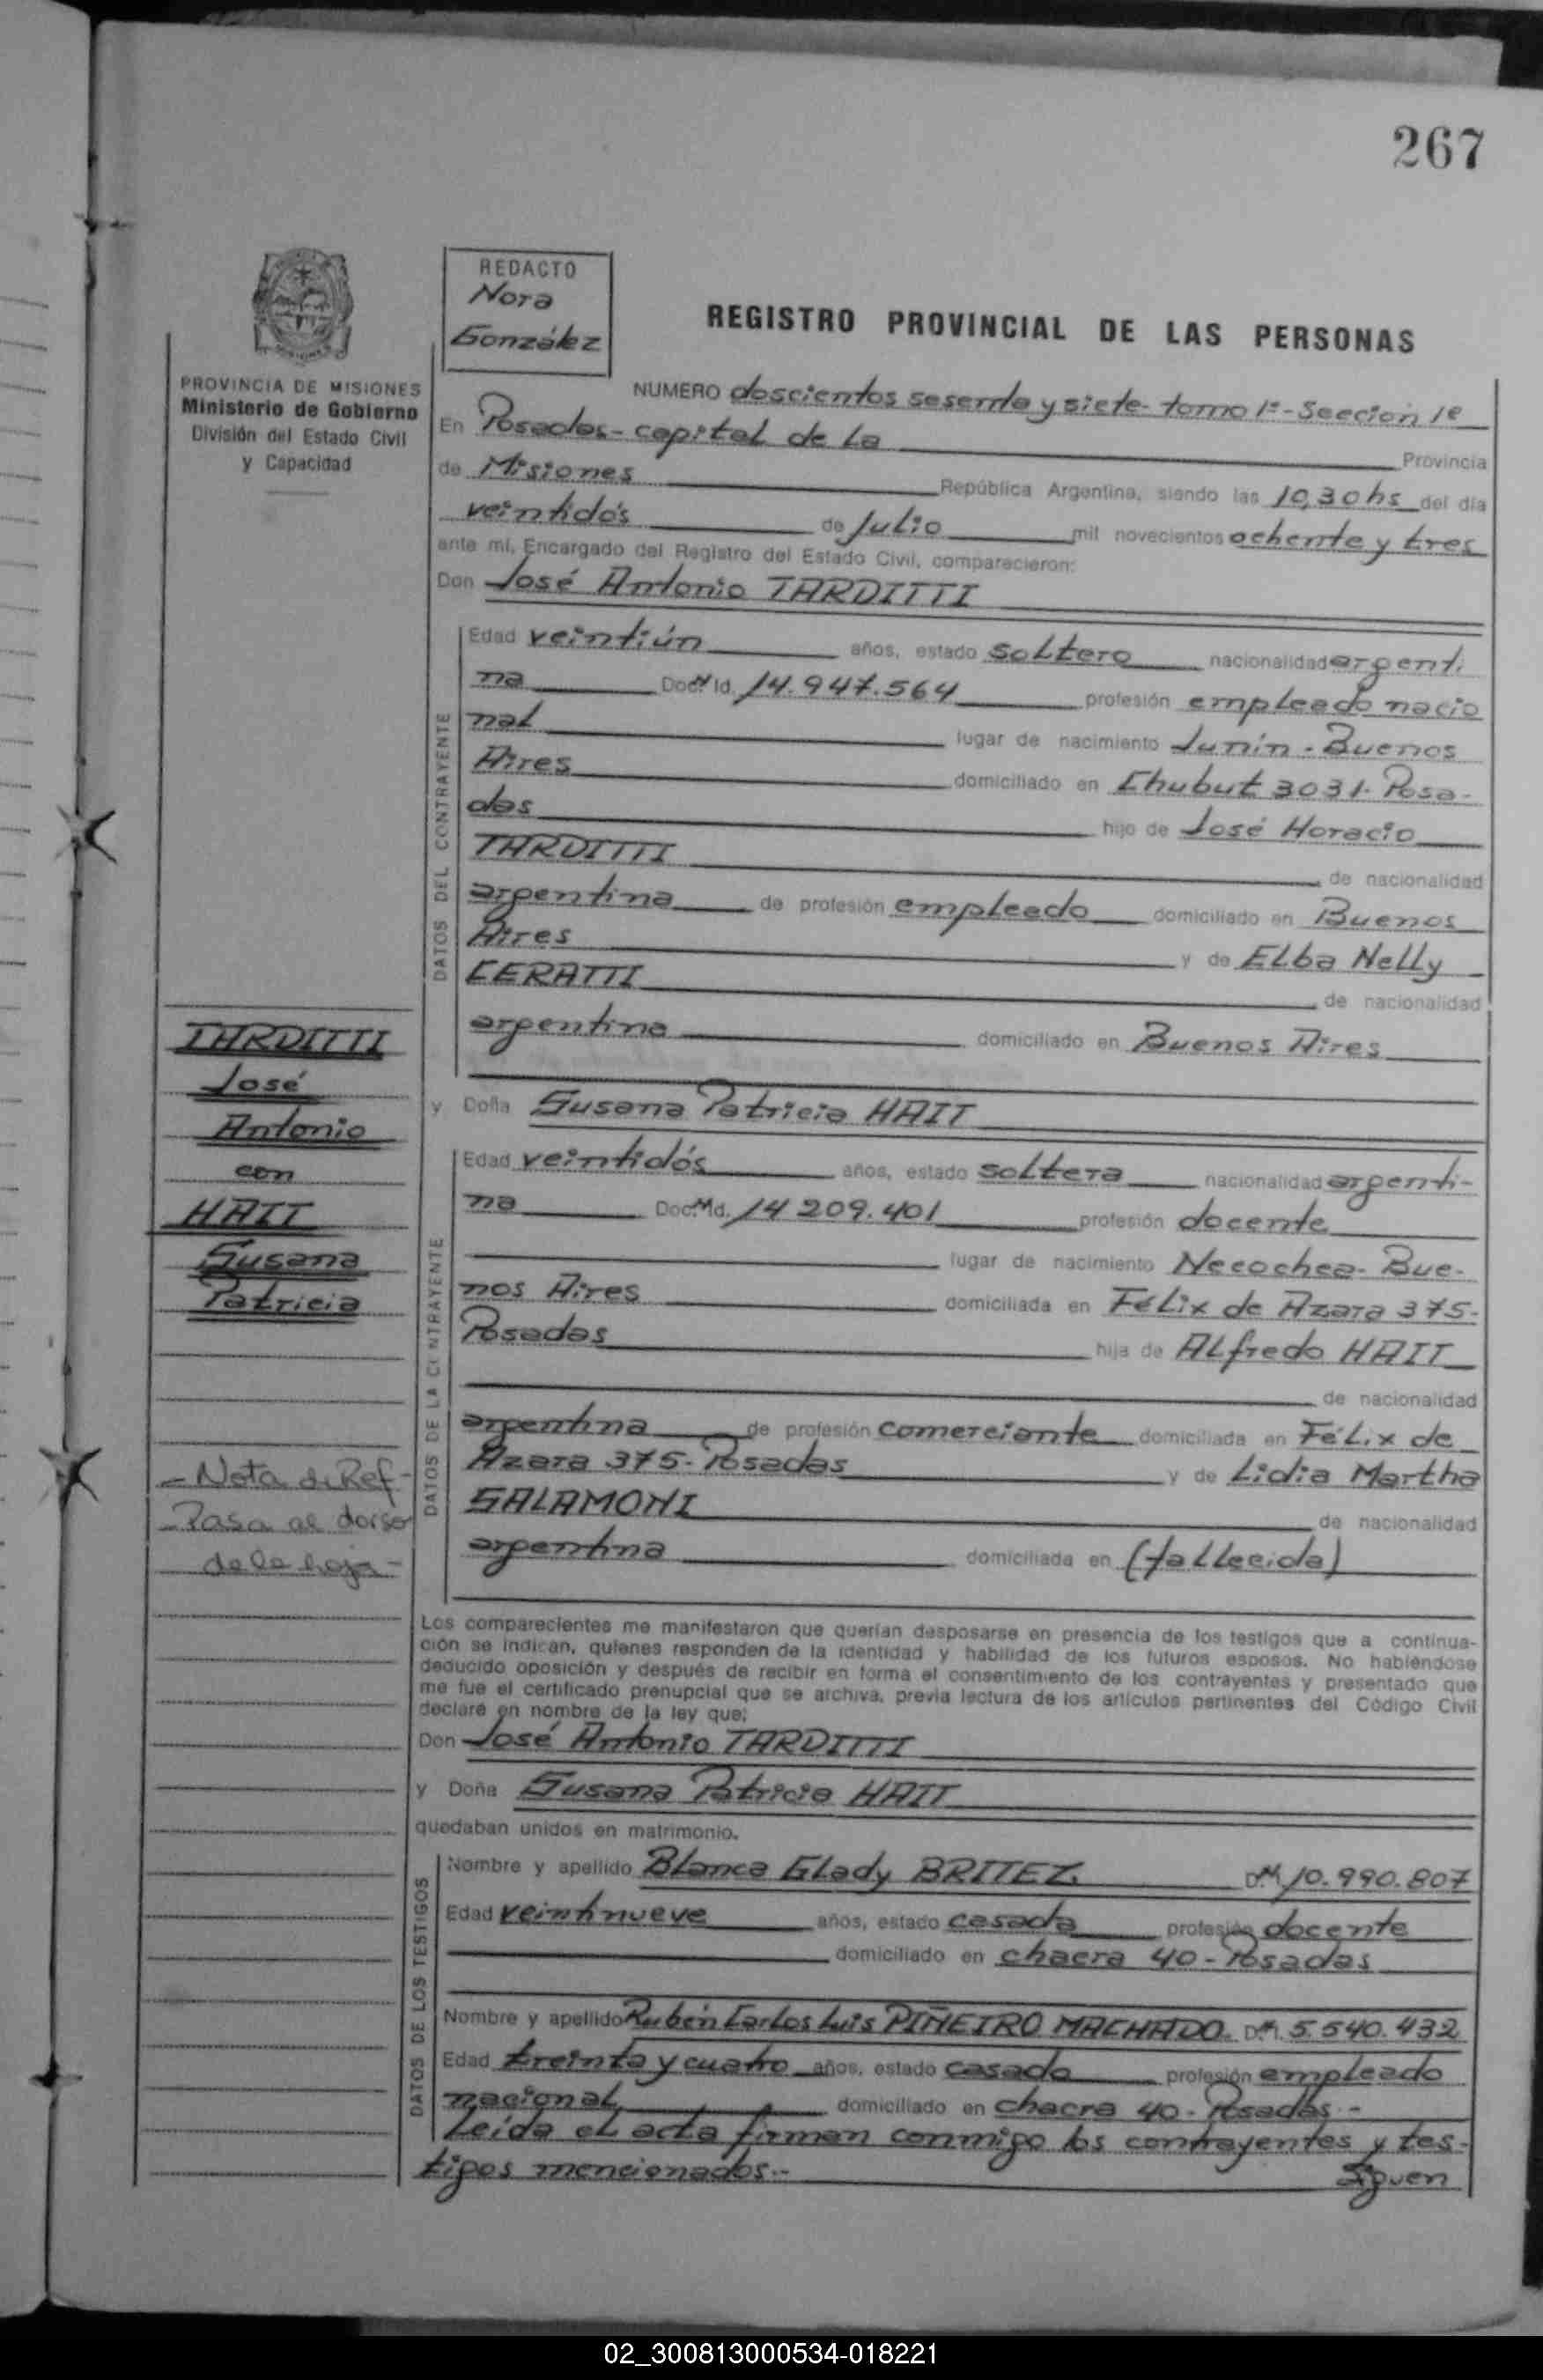 267
REDACTO
Nora
González
REGISTRO PROVINCIAL DE LAS PERSONAS
PROVINCIA DE MISIONES
Ministerio de Gobierno
División del Estado Civil
y Capacidad
NUMERO doscientos sesenta y siete - tomo 1º - Sección 1º
En Posadas - capital de la Provincia
de Misiones República Argentina, siendo las 10,30 hs del día
veintidós de Julio mil novecientos ochenta y tres
ante mí, Encargado del Registro del Estado Civil, comparecieron:
Don José Antonio TARDITTI
DATOS DEL CONTRAYENTE
Edad veintiún años, estado soltero nacionalidad argenti
na Doc. Id. 14.947.564 profesión empleado nacio
nal lugar de nacimiento Junín - Buenos
Aires domiciliado en Chubut 3031 - Posa-
das hijo de José Horacio
TARDITTI de nacionalidad
argentina de profesión empleado domiciliado en Buenos
Aires y de Elba Nelly
CERATTI de nacionalidad
argentina domiciliado en Buenos Aires
TARDITTI
José
Antonio
con
HAIT
Susana
Patricia
y Doña Susana Patricia HAIT
DATOS DE LA CONTRAYENTE
Edad veintidós años, estado soltera nacionalidad argenti-
na Doc. Id. 14 209.401 profesión docente
lugar de nacimiento Necochea - Bue-
nos Aires domiciliada en Félix de Azara 375-
Posadas hija de Alfredo HAIT
de nacionalidad
argentina de profesión comerciante domiciliada en Félix de
Azara 375 - Posadas y de Lidia Martha
SALAMONI de nacionalidad
argentina domiciliada en (fallecida)
- Nota de Ref -
- Pasa al dorso
de la hoja -
Los comparecientes me manifestaron que querían desposarse en presencia de los testigos que a continua-
ción se indican, quienes responden de la identidad y habilidad de los futuros esposos. No habiéndose
deducido oposición y después de recibir en forma el consentimiento de los contrayentes y presentado que
me fue el certificado prenupcial que se archiva, previa lectura de los artículos pertinentes del Código Civil
declaré en nombre de la ley que;
Don José Antonio TARDITTI
y Doña Susana Patricia HAIT
quedaban unidos en matrimonio.
DATOS DE LOS TESTIGOS
Nombre y apellido Blanca Glady BRITEZ. D.M. 10.990.807
Edad veintinueve años, estado casada profesión docente
domiciliado en chacra 40 - Posadas
Nombre y apellido Rubén Carlos Luis PIÑEIRO MACHADO. D.M. 5.540.432
Edad treinta y cuatro años, estado casado profesión empleado
nacional domiciliado en chacra 40 - Posadas -
Leída el acta firman conmigo los contrayentes y tes-
tigos mencionados.- Siguen
02_300813000534-018221